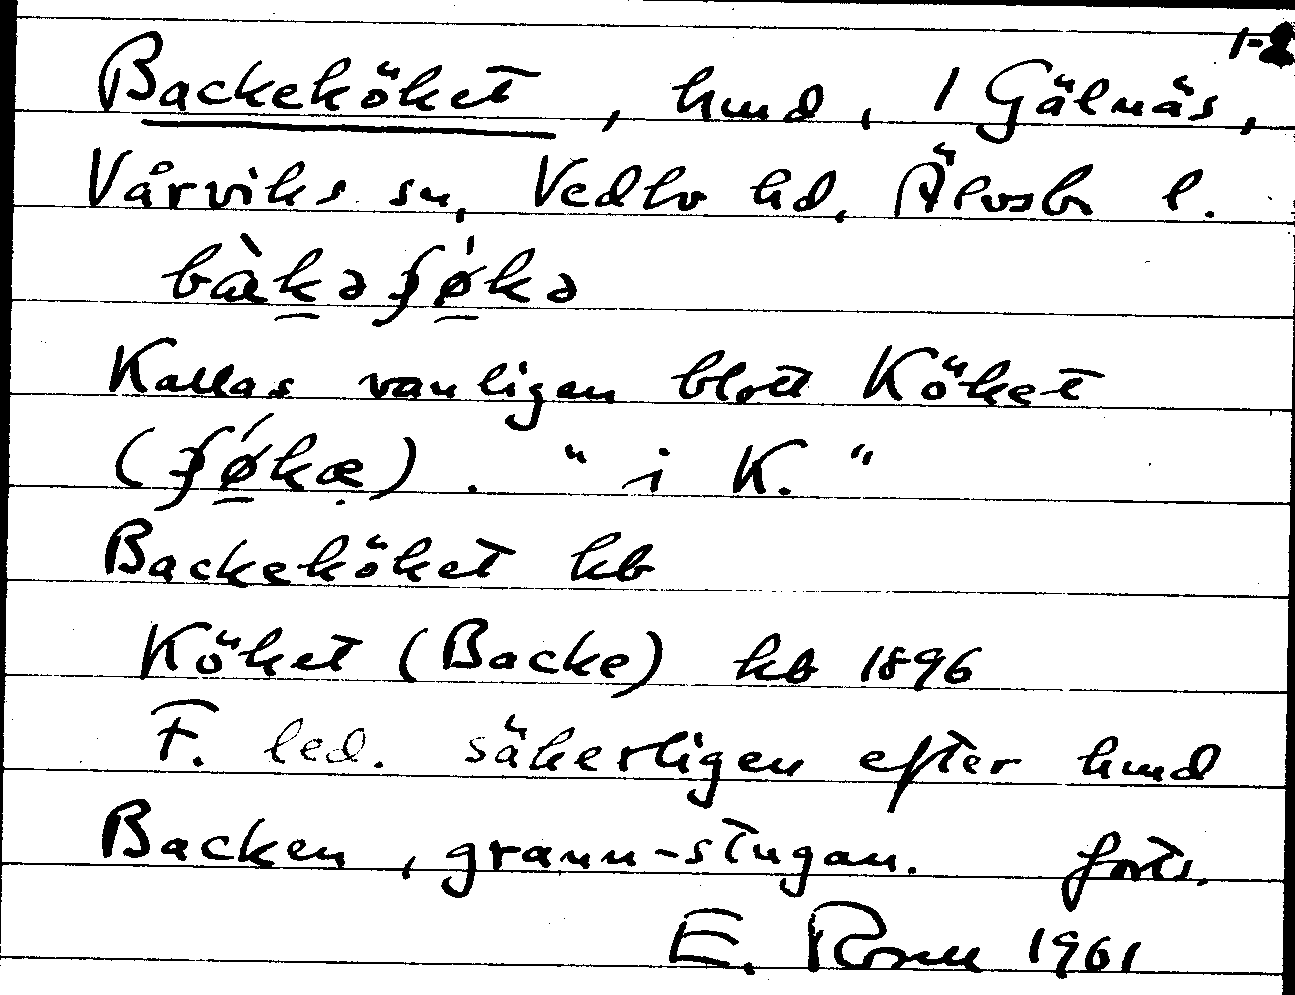 1-2
Backeköket, hmd, 1 Gälnäs,
Vårviks sn, Vedbo hd, Älvsb l.
bàkəʃø̀kə
Kallas vanligen blott Köket
(ʃǿkæ). "i K."
Backeköket kb
Köket (Backe) kb 1896
F. led. säkerligen efter hmd
Backen, grann-stugan. forts.
E. Rosell 1961